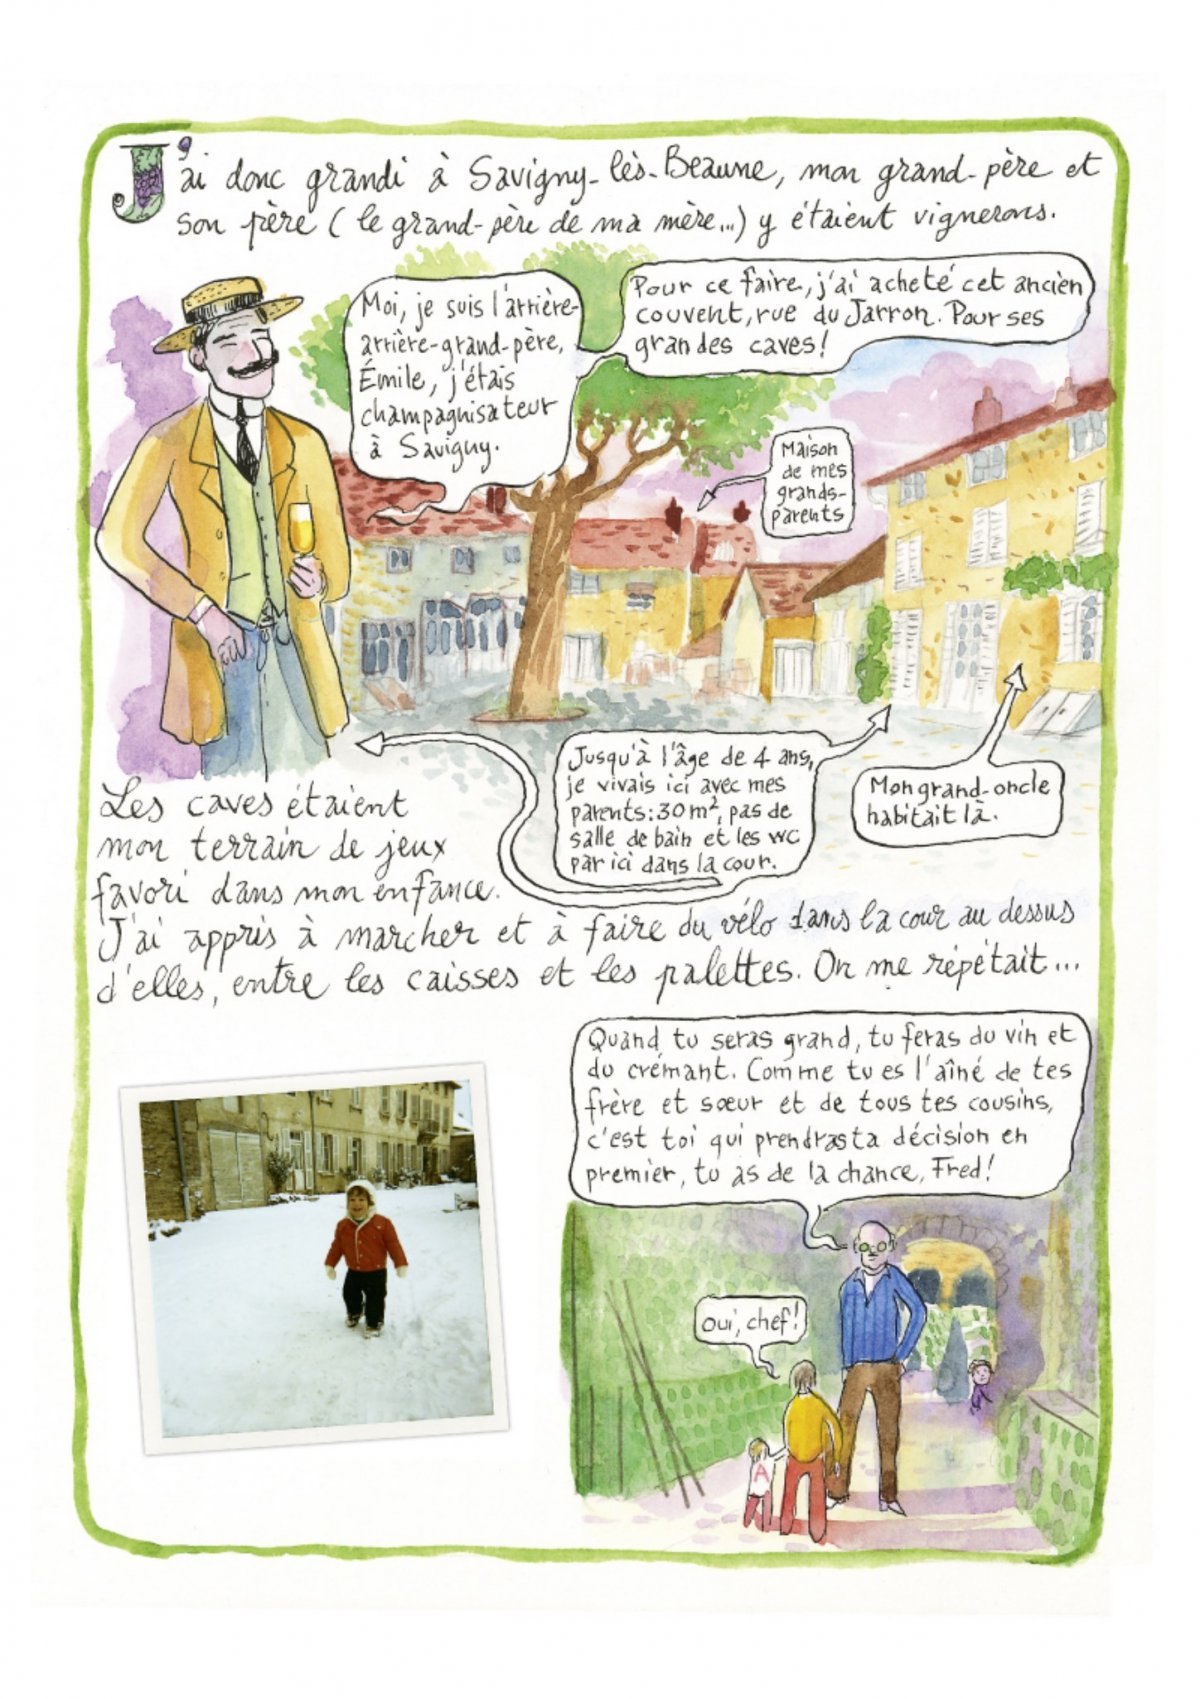 J'ai donc grandi à Savigny-lès-Beaune, mon grand-père et
son père (le grand-père de ma mère...) y étaient vignerons.
Moi, je suis l'arrière-
arrière-grand-père,
Émile, j'étais
champagnisateur
à Savigny.
Pour ce faire, j'ai acheté cet ancien
couvent, rue du Jarron. Pour ses
grandes caves!
Maison
de mes
grands-
parents
Jusqu'à l'âge de 4 ans,
je vivais ici avec mes
parents: 30 m², pas de
salle de bain et les wc
par ici dans la cour.
Mon grand-oncle
habitait là.
Les caves étaient
mon terrain de jeux
favori dans mon enfance.
J'ai appris à marcher et à faire du vélo dans la cour au dessus
d'elles, entre les caisses et les palettes. On me répétait...
Quand tu seras grand, tu feras du vin et
du crémant. Comme tu es l'aîné de tes
frère et sœur et de tous tes cousins,
c'est toi qui prendras ta décision en
premier, tu as de la chance, Fred!
Oui, chef!
A